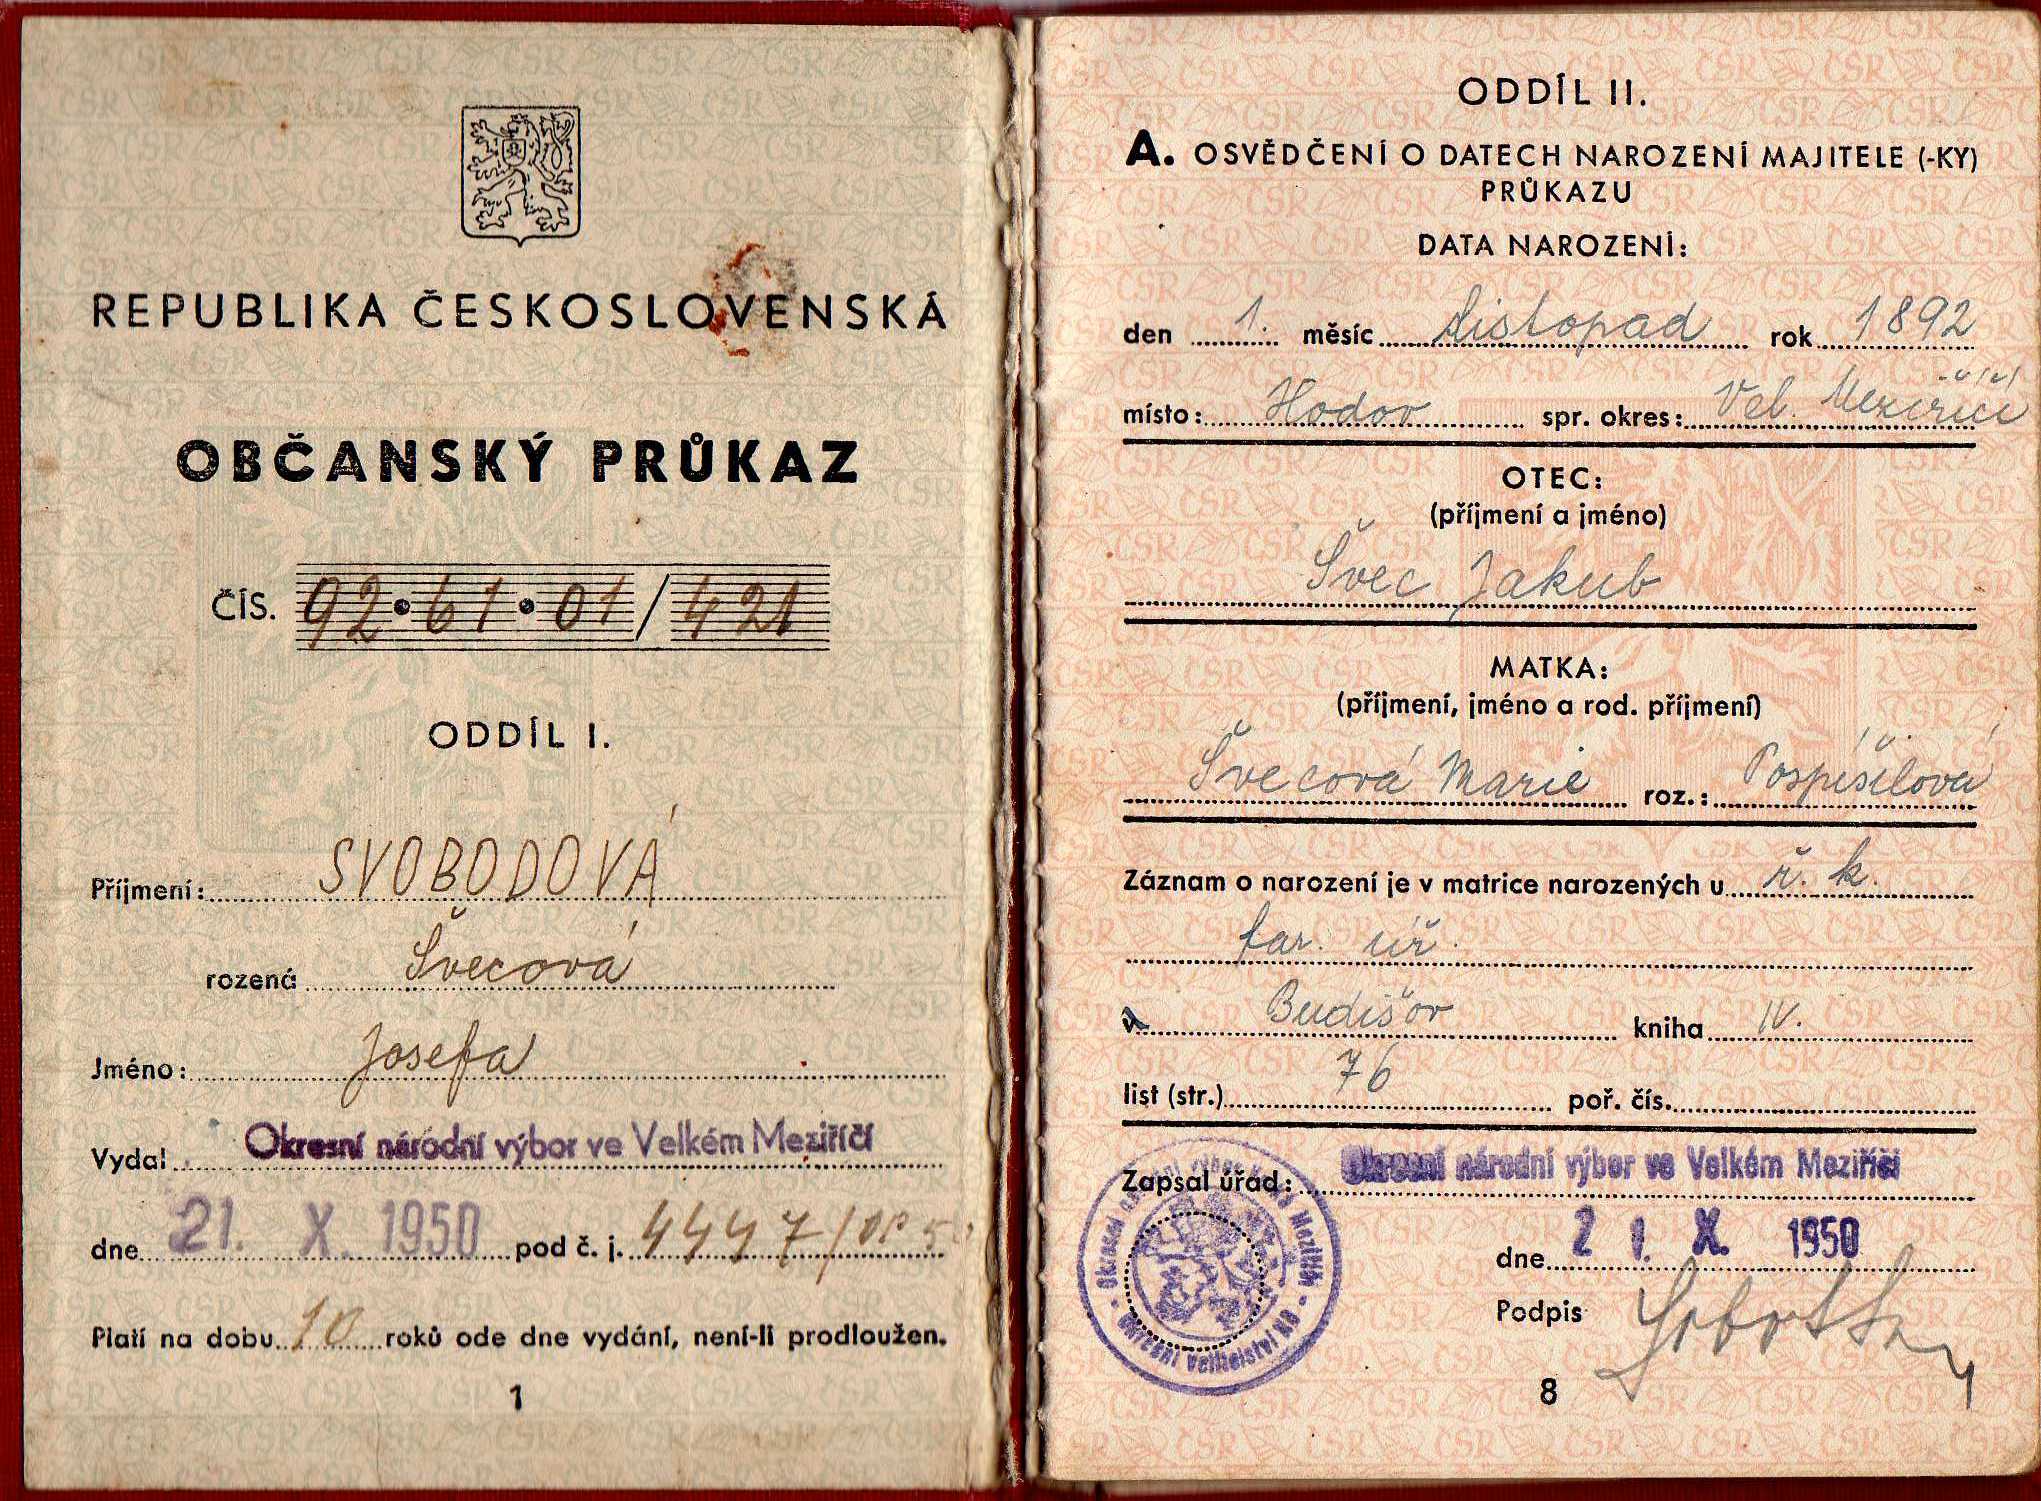 REPUBLIKA ČESKOSLOVENSKÁ
OBČANSKÝ PRŮKAZ
ČÍS. 92·61·01/421
ODDÍL I.
Příjmení: SVOBODOVÁ
rozená Švecová
Jméno: Josefa
Vydal Okresní národní výbor ve Velkém Meziříčí
dne 21. X. 1950 pod č. j. 4447/OP 5
Platí na dobu 10 roků ode dne vydání, není-li prodloužen.
1
ODDÍL II.
A. OSVĚDČENÍ O DATECH NAROZENÍ MAJITELE (-KY)
PRŮKAZU
DATA NAROZENÍ:
den 1. měsíc Listopad rok 1892
místo: Hodov spr. okres: Vel. Meziříčí
OTEC:
(příjmení a jméno)
Švec Jakub
MATKA:
(příjmení, jméno a rod. příjmení)
Švecová Marie roz.: Pospíšilová
Záznam o narození je v matrice narozených u ř. k.
far. úř.
v Budišov kniha IV.
list (str.) 76 poř. čís.
Zapsal úřad: Okresní národní výbor ve Velkém Meziříčí
dne 21. X. 1950
Podpis
8